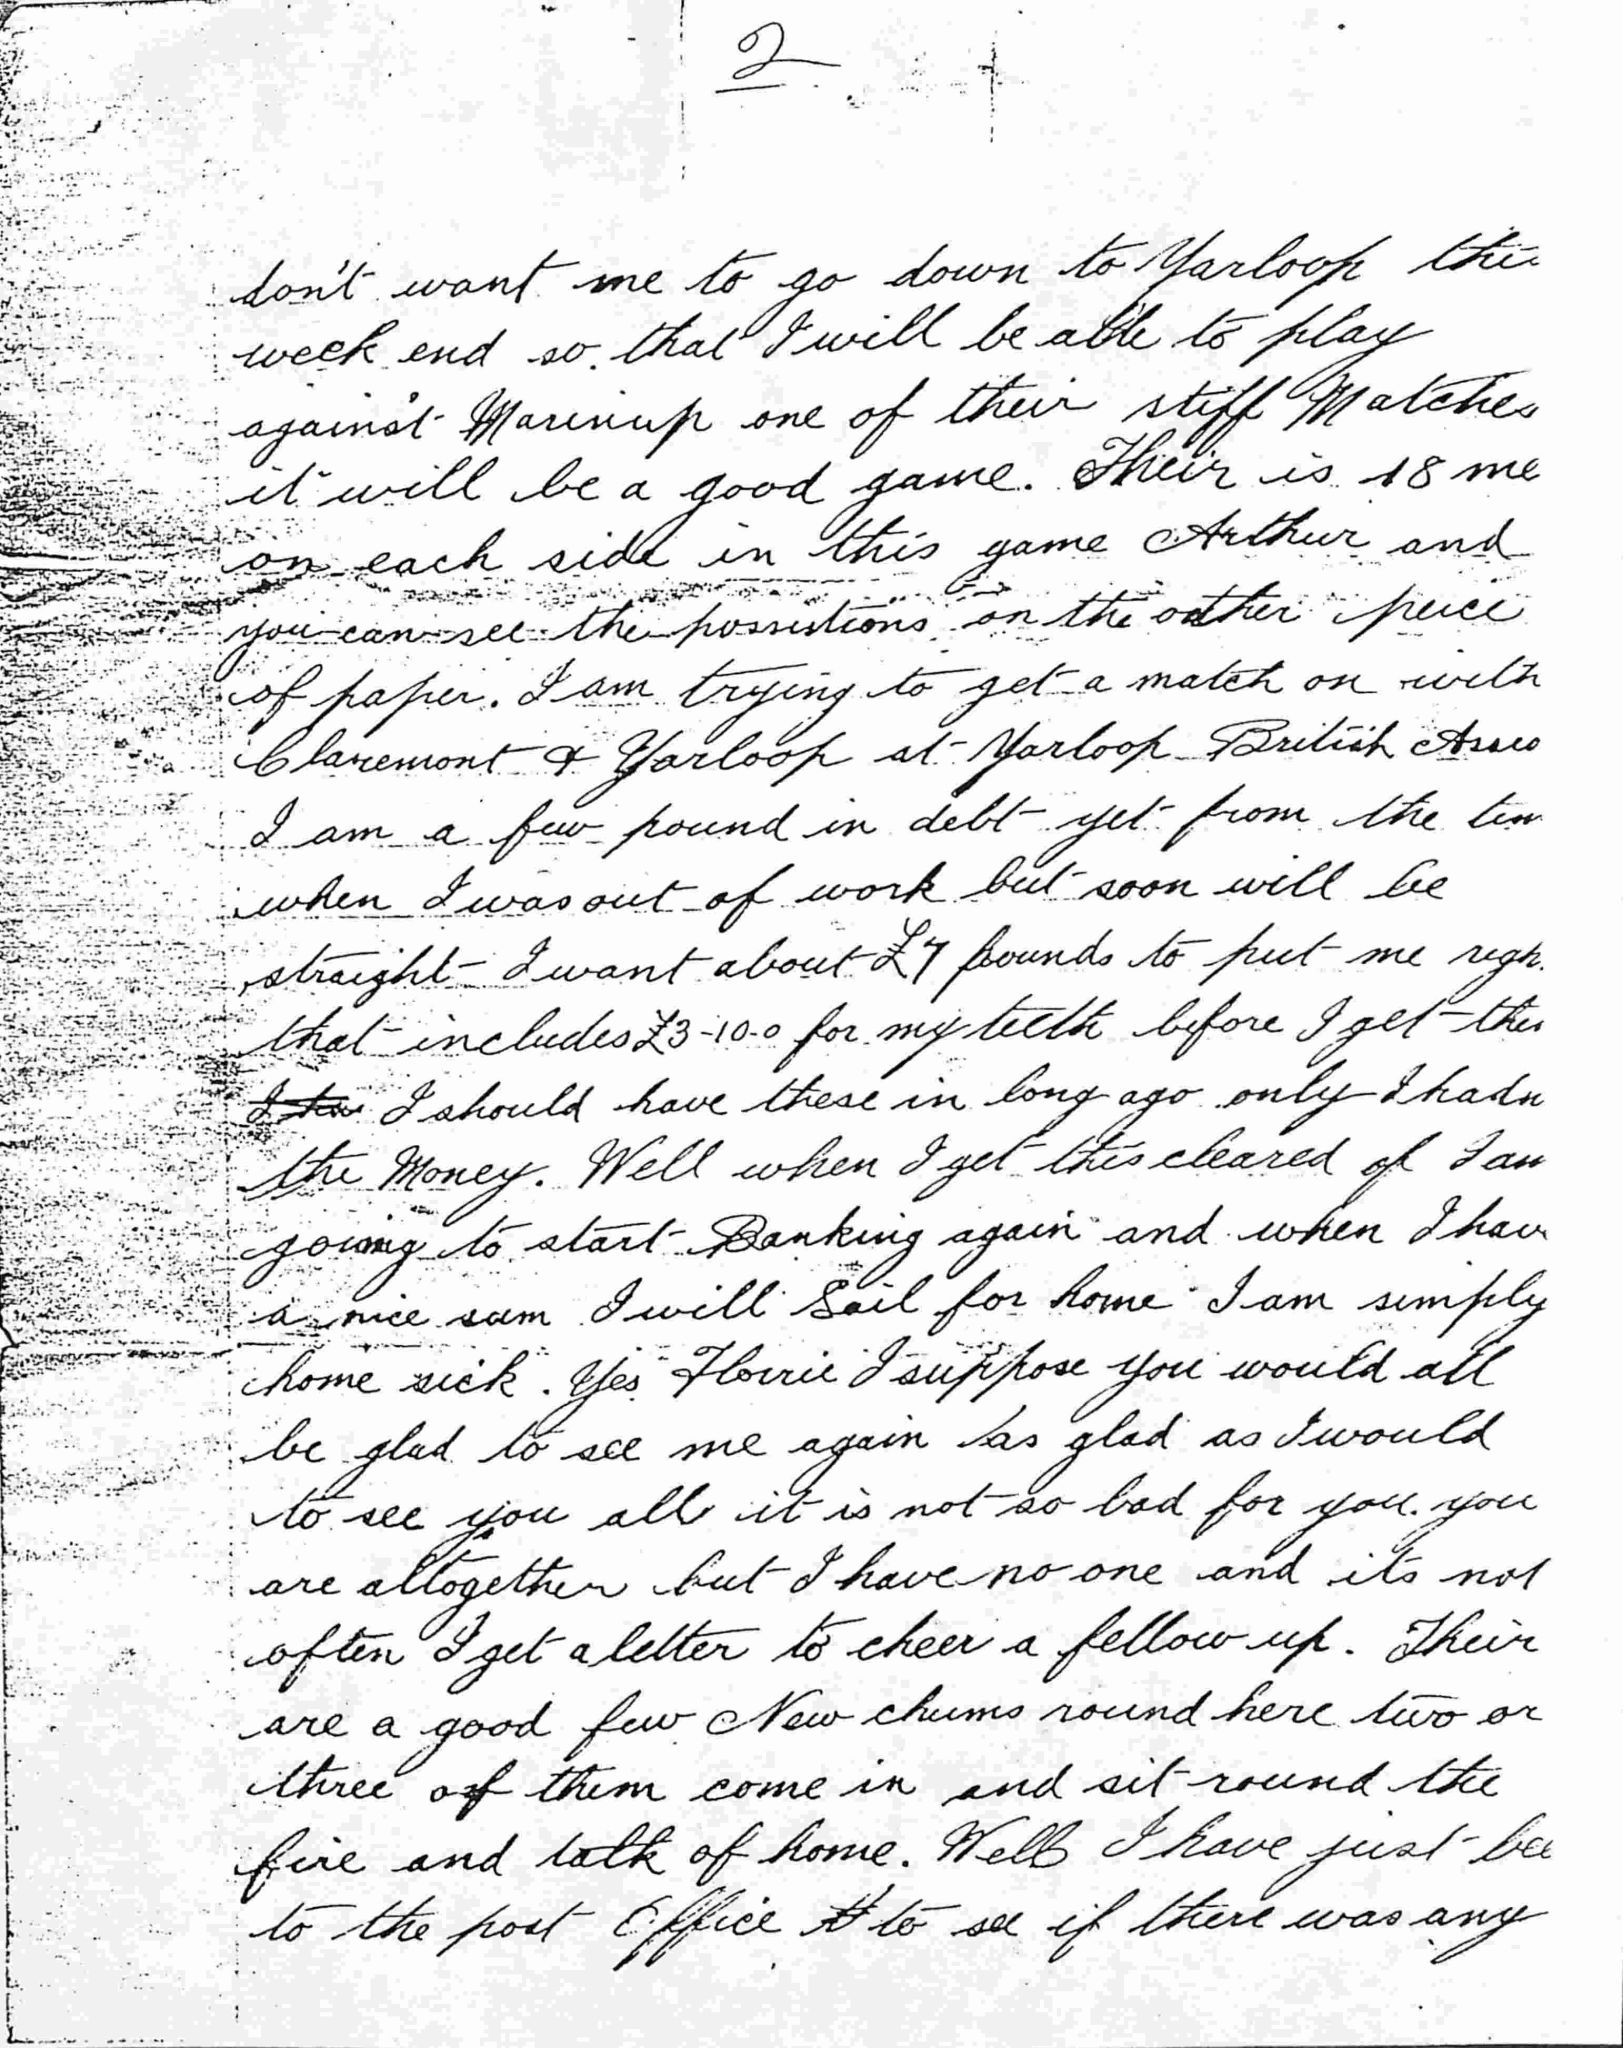 2
don't want me to go down to Yarloop this
week end so that I will be able to play
against Marinup one of their stiff Matches
it will be a good game. Their is 18 me
on each side in this game Arthur and
you can see the possistions on the other peice
of paper. I am trying to get a match on with
Claremont & Yarloop at Yarloop British Asso
I am a few pound in debt yet from the tim
when I was out of work but soon will be
straight I want about £7 pounds to put me righ
that includes £3-10-0 for my teeth before I get this
I should have these in long ago only I hadn
the Money. Well when I get this cleared of I am
going to start Banking again and when I hav
a nice sum I will Sail for home I am simply
home sick. Yes Florrie I suppose you would all
be glad to see me again as glad as I would
to see you all it is not so bad for you. you
are altogether but I have no one and its not
often I get a letter to cheer a fellow up. Their
are a good few New chums round here two or
three of them come in and sit round the
fire and talk of home. Well I have just bee
to the post Office to see if there was any